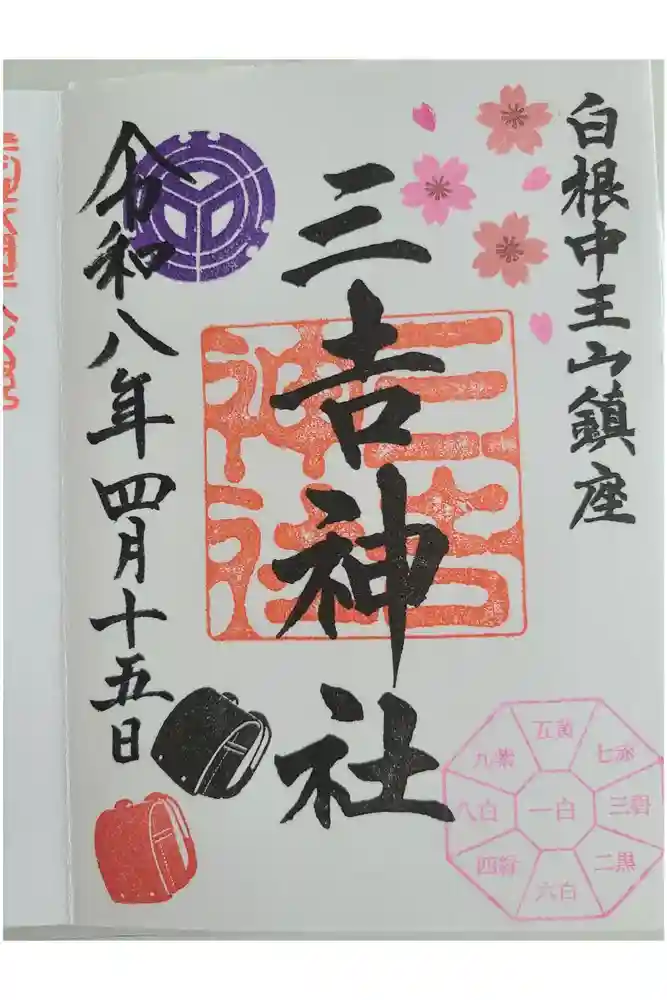 白根中王山鎮座
三吉神社
三吉
神社
令和八年四月十五日
五黄
九紫
七赤
八白
一白
三碧
四緑
二黒
六白